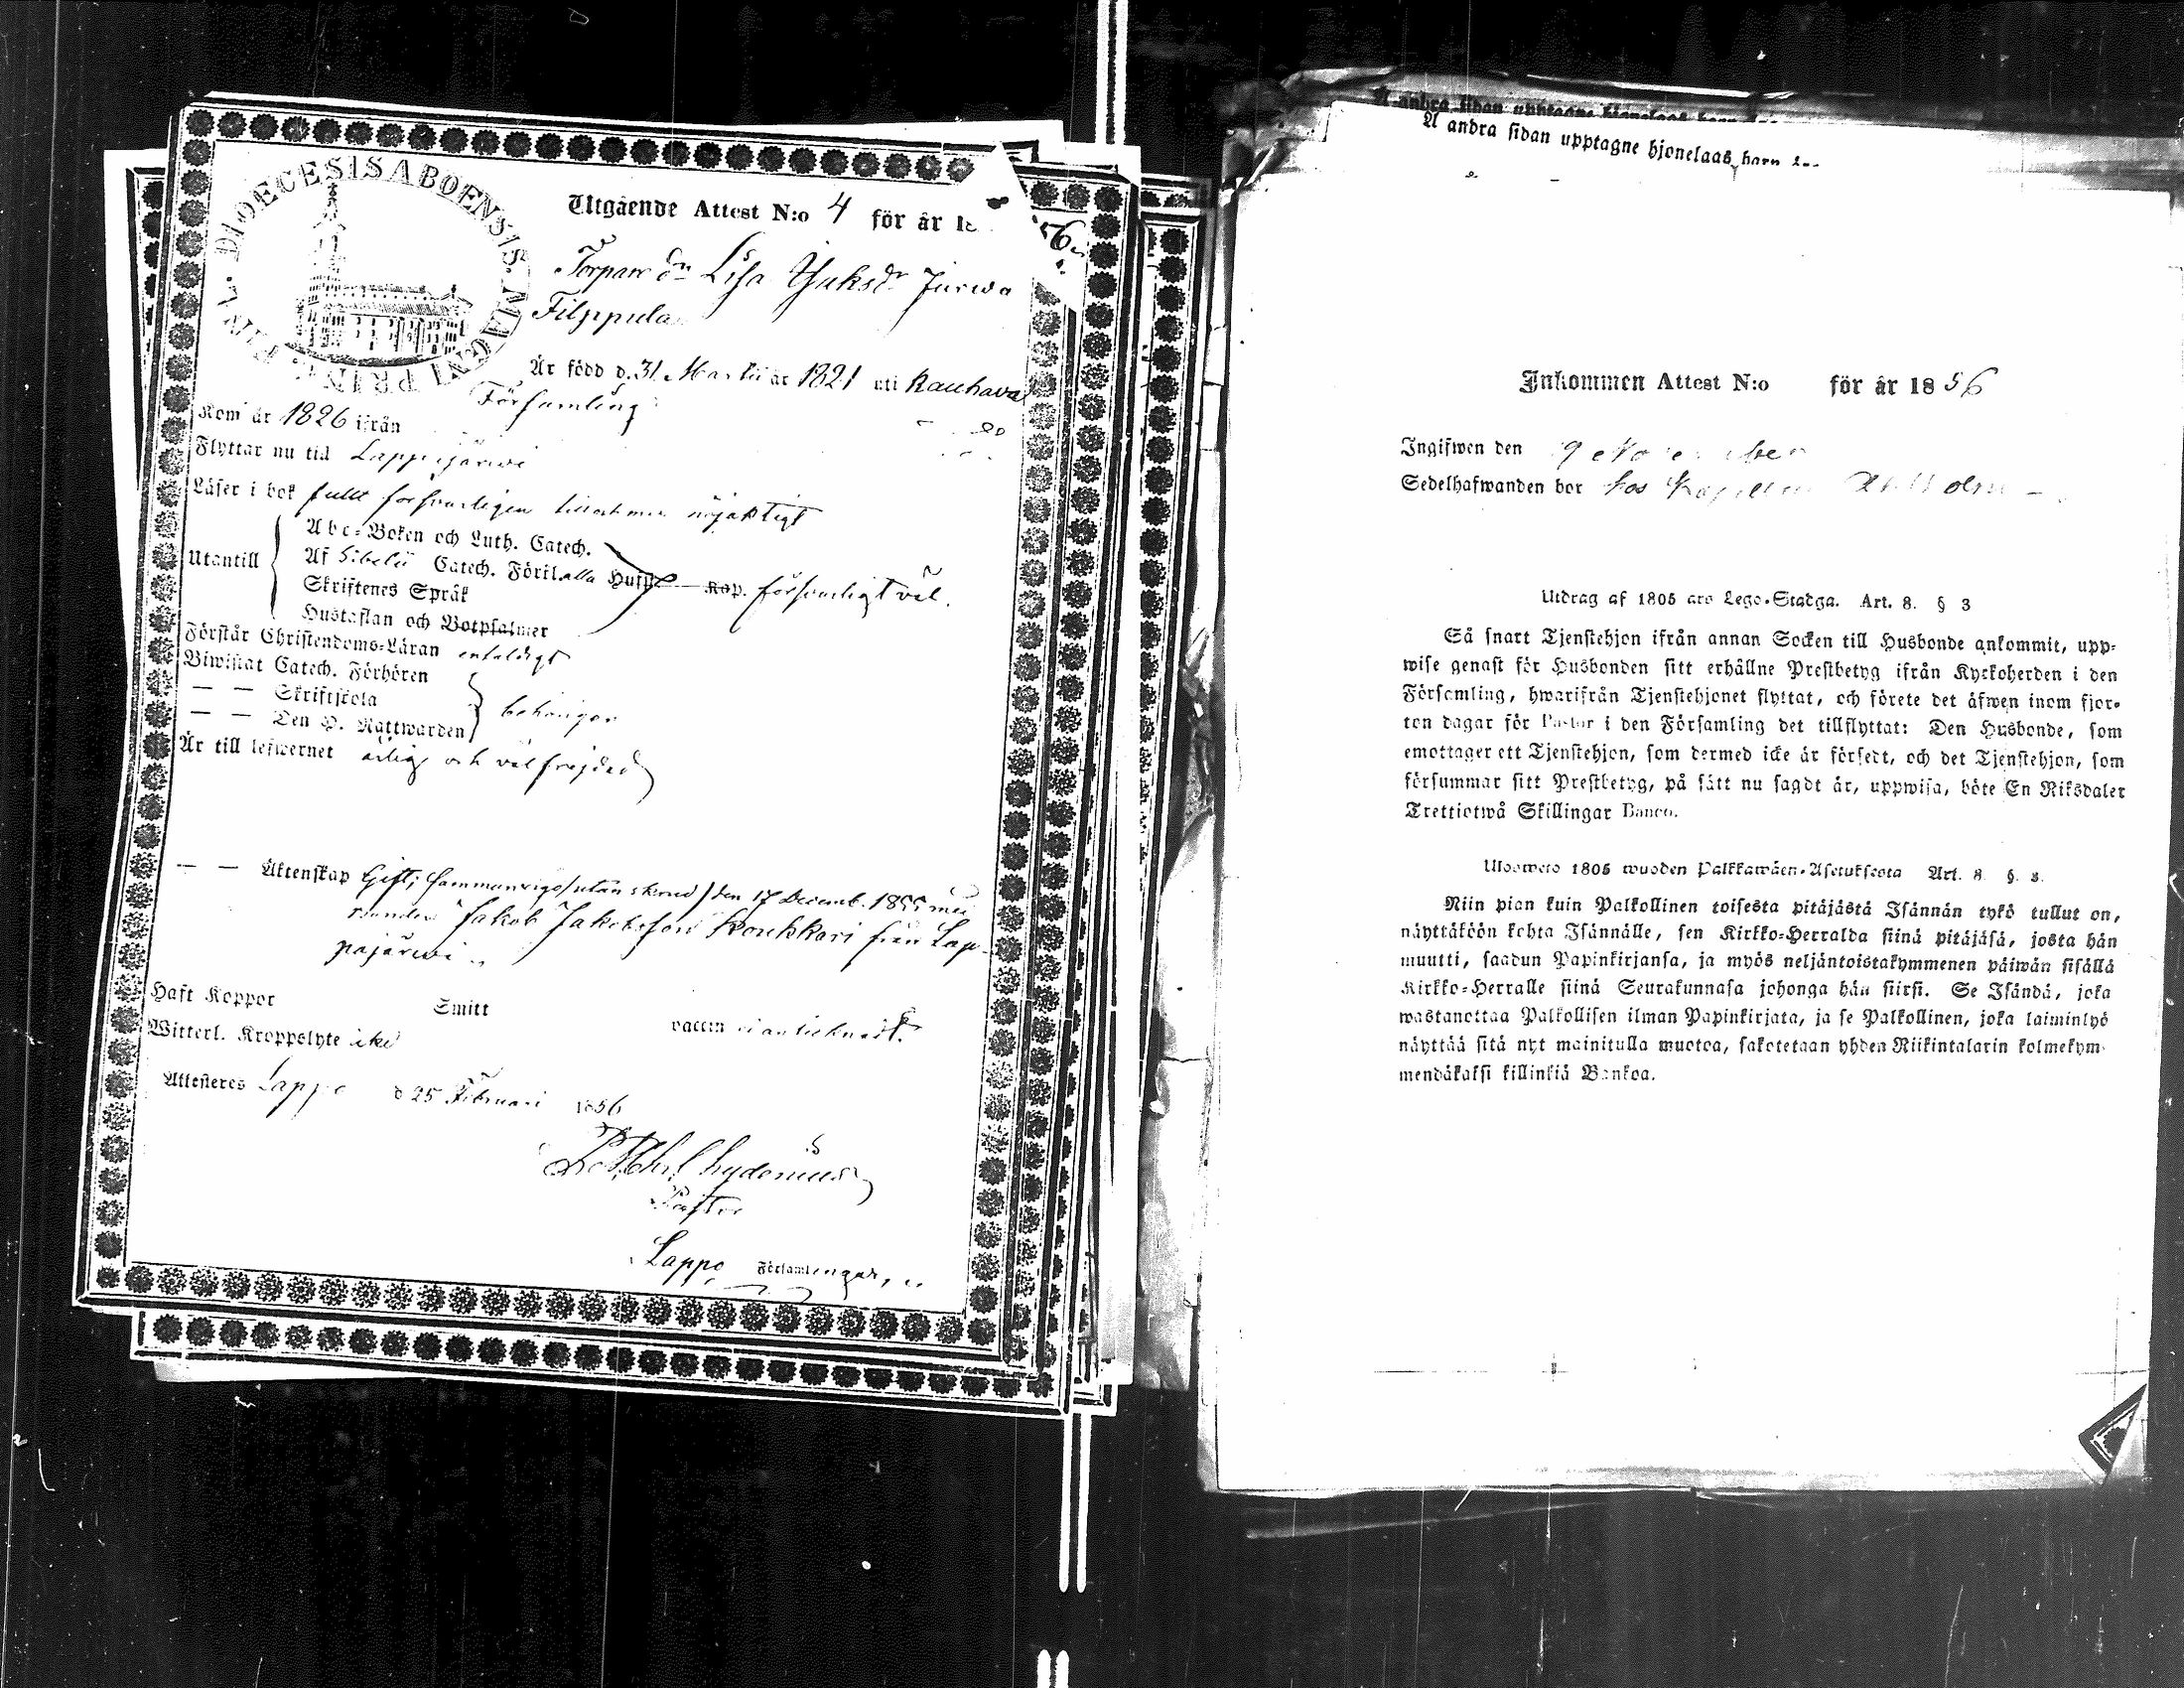 DIOECESIS ABOENSIS. MAGNI PRINC. FINL.
Utgående Attest N:o 4 för år 1856.
Torpare dn Lisa Jjuksdr Jurwa
Filppula
Är född d. 31 Martii år 1821 uti Kauhava
Församling
Kom år 1826 ifrån
Flyttar nu till Lappojärwi
Läser i bok fullt försvarligen
Utantill
Abc-Boken och Luth. Catech.
Af Sibelii Catech. Förkl. alla Hufst.
Skriftenes Språk
Hustaflan och Botpsalmer
försvarligt väl.
Förstår Christendoms-Läran enfaldigt
Biwistat Catech. Förhören
— — Skriftskola
— — Den H. Nattwarden
behörigen
Är till lefwernet ärlig och välfrejdad
— — Äktenskap Gift; sammanvigd (utan skrud) den 17 Decemb. 1855 med
Jakob Jakobsson Kouhkari från Lap-
pajärwi.
Haft Koppor Smitt vaccin ei antecknadt.
Witterl. Kroppslyte icke
Attesteres Lappo d 25 Februari 1856
Chydenius
Pastor
Lappo Församlingar,
Å andra sidan upptagne hjonelaas barn
Å andra sidan upptagne hjonelaas barn
Inkommen Attest N:o för år 1856
Ingifwen den 9 November
Sedelhafwanden bor hos Kapellan Ahlholm
Utdrag af 1805 års Lego-Stadga. Art. 8. § 3
Så snart Tjenstehjon ifrån annan Socken till Husbonde ankommit, upp-
wise genast för Husbonden sitt erhållne Prestbetyg ifrån Kyrkoherden i den
Församling, hwarifrån Tjenstehjonet flyttat, och förete det äfwen inom fjor-
ton dagar för Pastor i den Församling det tillflyttat: Den Husbonde, som
emottager ett Tjenstehjon, som dermed icke är försedt, och det Tjenstehjon, som
försummar sitt Prestbetyg, på sätt nu sagdt är, uppwisa, böte En Riksdaler
Trettiotwå Skillingar Banco.
Ulosweto 1805 wuoden Palkkawäen-Asetuksesta Art. 8. §. 3.
Niin pian kuin Palkollinen toisesta pitäjästä Isännän tykö tullut on,
näyttäköön kohta Isännälle, sen Kirkko-Herralda siinä pitäjäsä, josta hän
muutti, saadun Papinkirjansa, ja myös neljäntoistakymmenen päiwän sisällä
Kirkko-Herralle siinä Seurakunnasa johonga hän siirsi. Se Isändä, joka
wastanottaa Palkollisen ilman Papinkirjata, ja se Palkollinen, joka laiminlyö
näyttää sitä nyt mainitulla muotoa, sakotetaan yhden Riikintalarin kolmekym-
mendäkaksi killinkiä Bankoa.